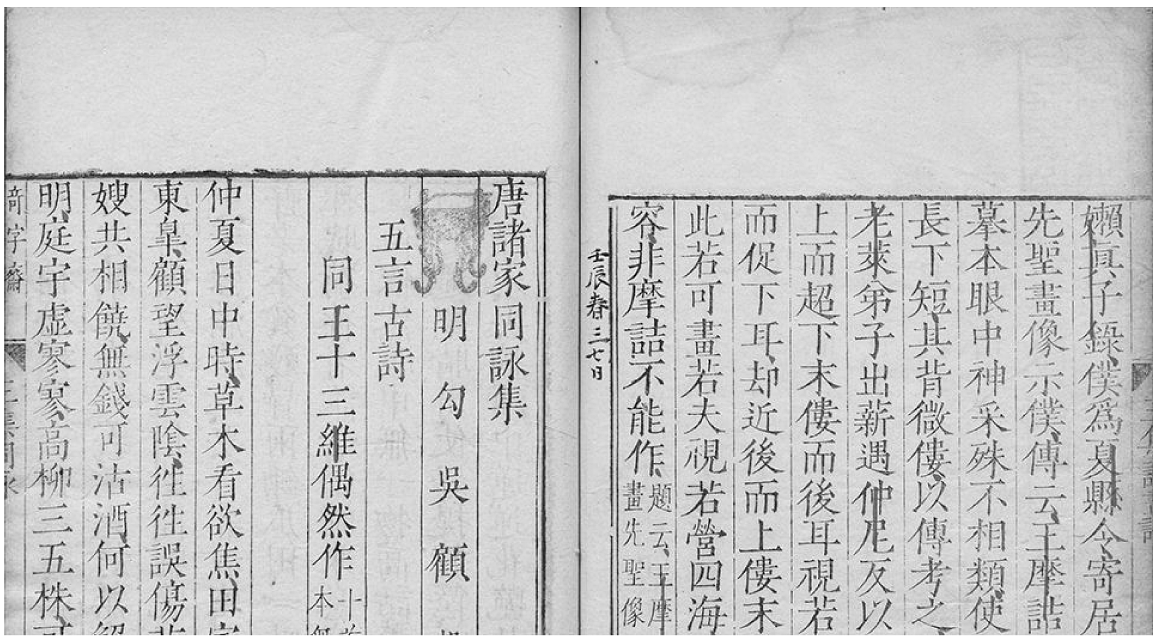 嬾真子錄僕爲夏縣令寄居
先聖畫像示僕傳云王摩詰
摹本眼中神采殊不相類使
長下短其背微僂以傳考之
老萊第子出薪遇仲尼反以
上而超下末僂而後耳視若
而促下耳却近後而上僂末
此若可畫若夫視若營四海
容非摩詰不能作題云王摩
畫先聖像
壬辰春三七日
唐諸家同詠集
明勾吳顧
五言古詩
同王十三維偶然作十首
本
仲夏日中時草木看欲焦田家
東皐顧望浮雲陰徃徃誤傷
嫂共相饒無錢可沽酒何以
明庭宇虛寥寥高柳三五株可
奇字齋